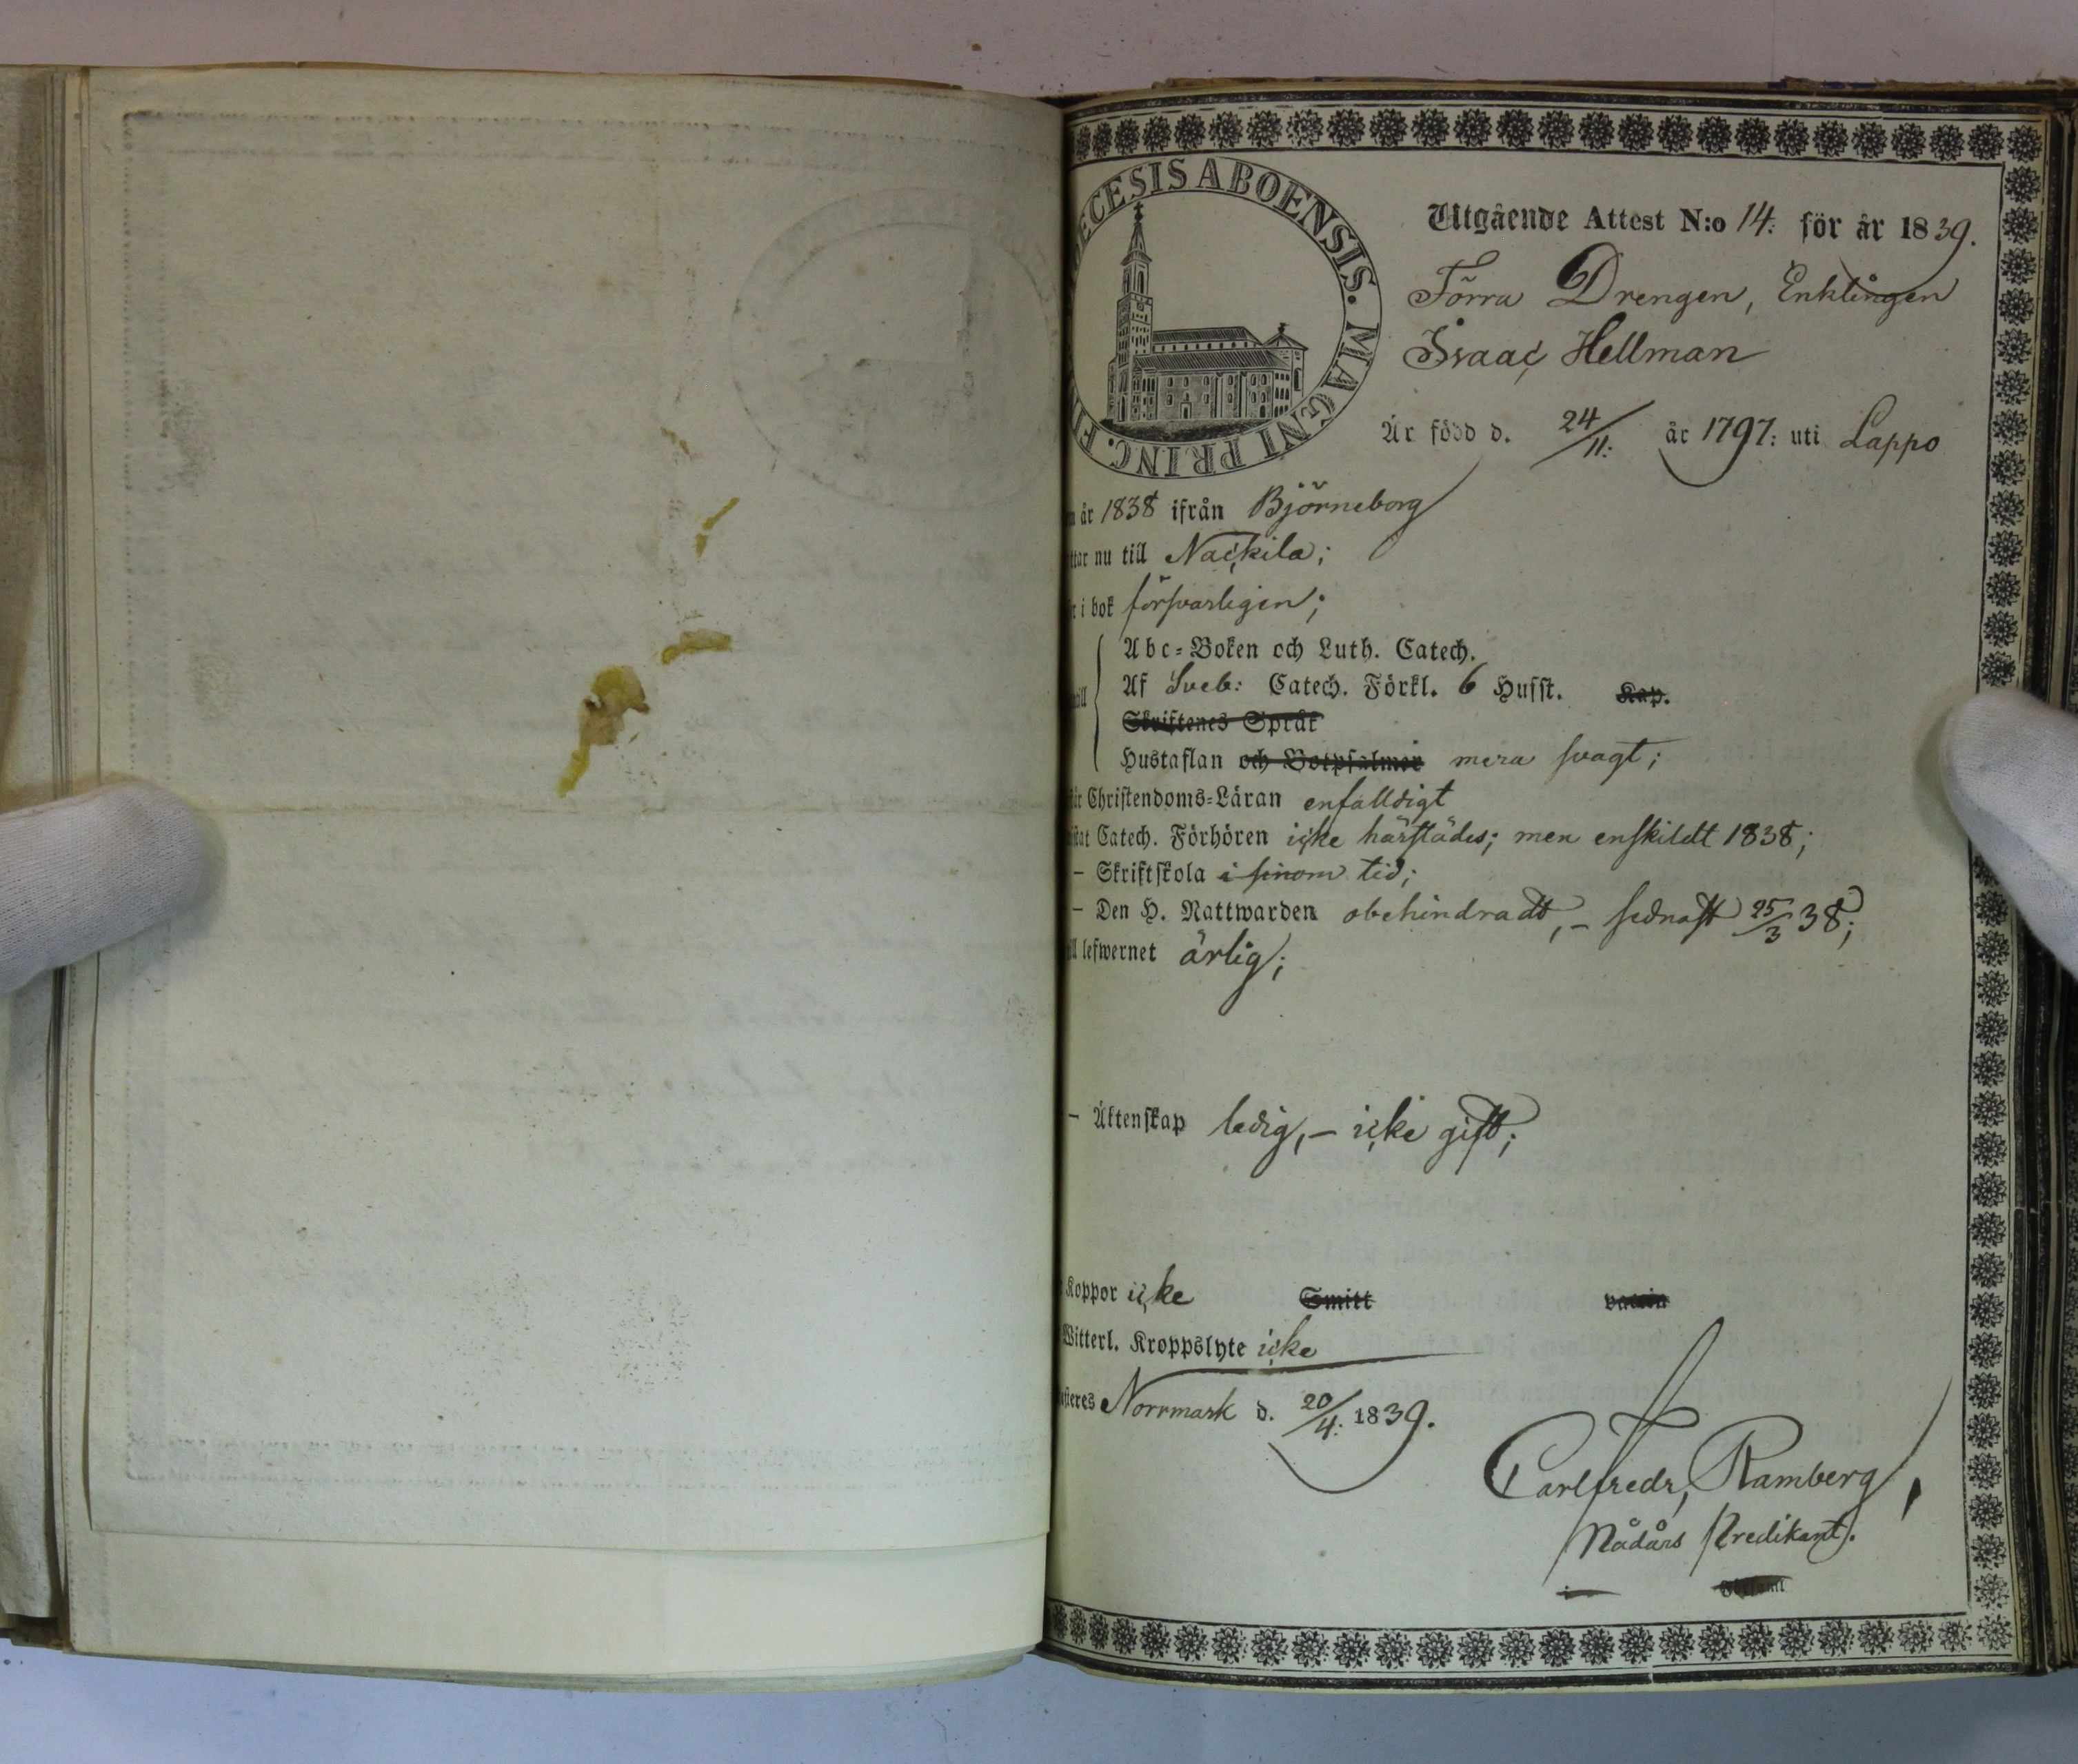 DIOECESIS ABOENSIS. MAGNI PRINC. FI
Utgående Attest N:o 14: för år 1839.
Förra Drengen, Enklingen
Isaac Hellman
Är född d. 24/11: år 1797: uti Lappo
m år 1838 ifrån Björneborg
ttar nu till Nackila;
r i bok försvarligen;
Abc-Boken och Luth. Catech.
Af Sveb: Catech. Förkl. 6 Husst. Kap.
Skriftenes Språk
Hustaflan och Botpsalmer mera svagt;
år Christendoms-Läran enfalldigt
kat Catech. Förhören icke härstädes; men enskildt 1838;
– Skriftskola i sinom tid;
– Den H. Nattwarden obehindradt, – sednast 25/3 38;
ll lefwernet ärlig;
– Äktenskap ledig, – icke gift;
Koppor icke Smitt vaccin
Witterl. Kroppslyte icke
esteres Norrmark d. 20/4: 1839.
Carl Fredr, Ramberg,
Nådårs Predikant.
i Församl